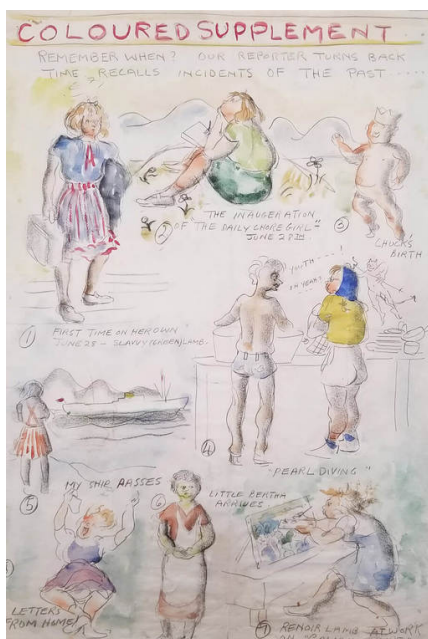 COLOURED SUPPLEMENT
REMEMBER WHEN? OUR REPORTER TURNS BACK
TIME RECALLS INCIDENTS OF THE PAST.....
"THE INAUGERATION
OF THE DAILY CHORE GIRL"
JUNE 28TH
2
3
CHUCK'S
BIRTH
1
FIRST TIME ON HER OWN
JUNE 28 - LAMB.
YOUTH ---!
OH YEAH?
4
"PEARL DIVING"
5
MY SHIP PASSES
6
LITTLE BERTHA
ARRIVES
LETTERS
FROM HOME!
7
RENOIR LAMB AT WORK